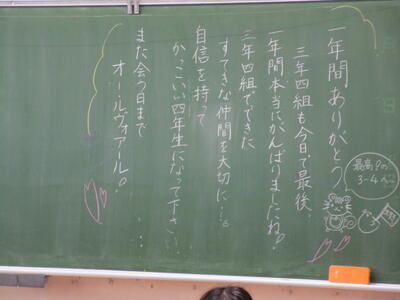 一年間ありがとう
三年四組も今日で最後。
一年間本当にがんばりましたね!
三年四組でできた
すてきな仲間を大切に…。
自信を持って
かっこいい四年生になって下さい…
また会う日まで
オールヴォアール!
最高の
3-4